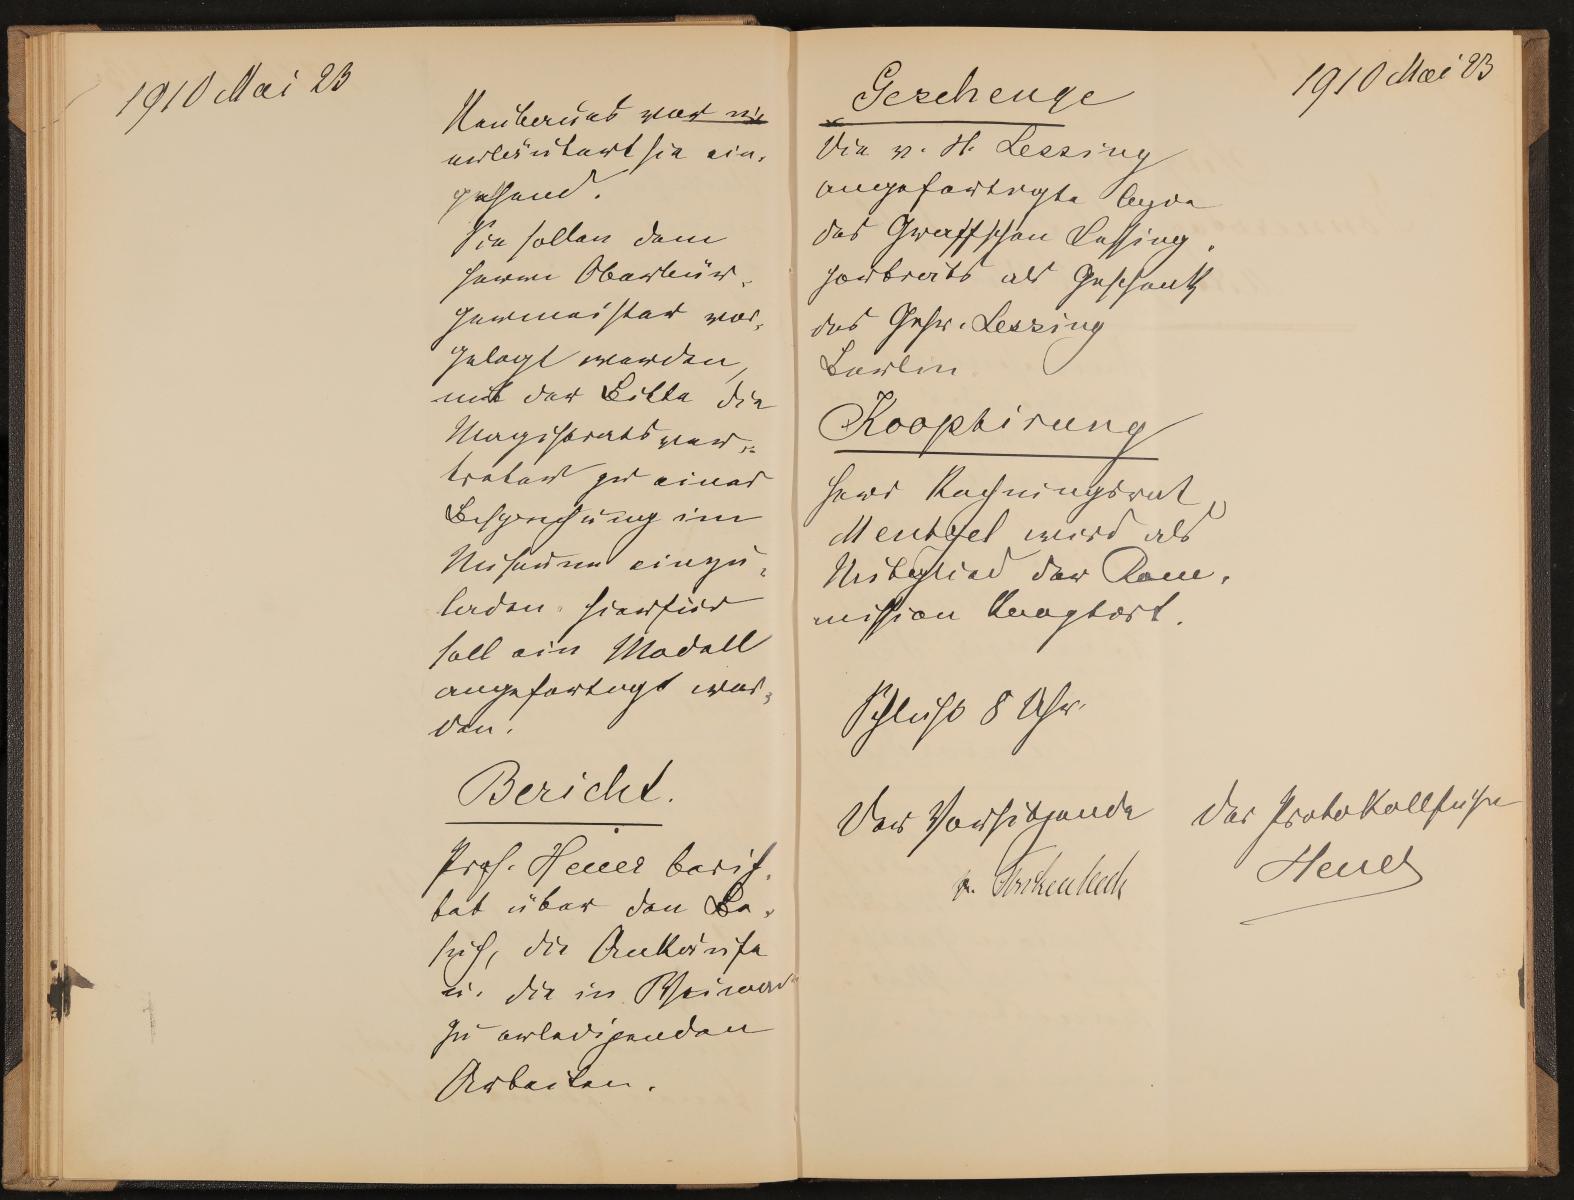 1910 Mai 23
Neubaues vor u.
erläutert sie ein-
gehend.
Sie sollen dem
Herrn Oberbür-
germeister vor-
gelegt werden,
mit der Bitte die
Magistratsver-
treter zu einer
Besprechung im
Museum einzu-
laden. Hierfür
soll ein Modell
angefertigt wer-
den.
Bericht.
Prof. Heuer berich-
tet über den Be-
such, die Ankäufe
u. die in Weimar
zu erledigenden
Arbeiten.
1910 Mai 23
Geschenge
Die v. H. Lessing
angefertigte Copie
des Graffschen Lessing-
porträts als Geschenk
des Gehr. Lessing
Berlin.
Kooptirung
Herr Rechnungsrat
Mentzel wird als
Mitglied der Kom-
mission kooptiert.
Schluß 8 Uhr.
Der Vorsitzende
Der Protokollführer
Heuer